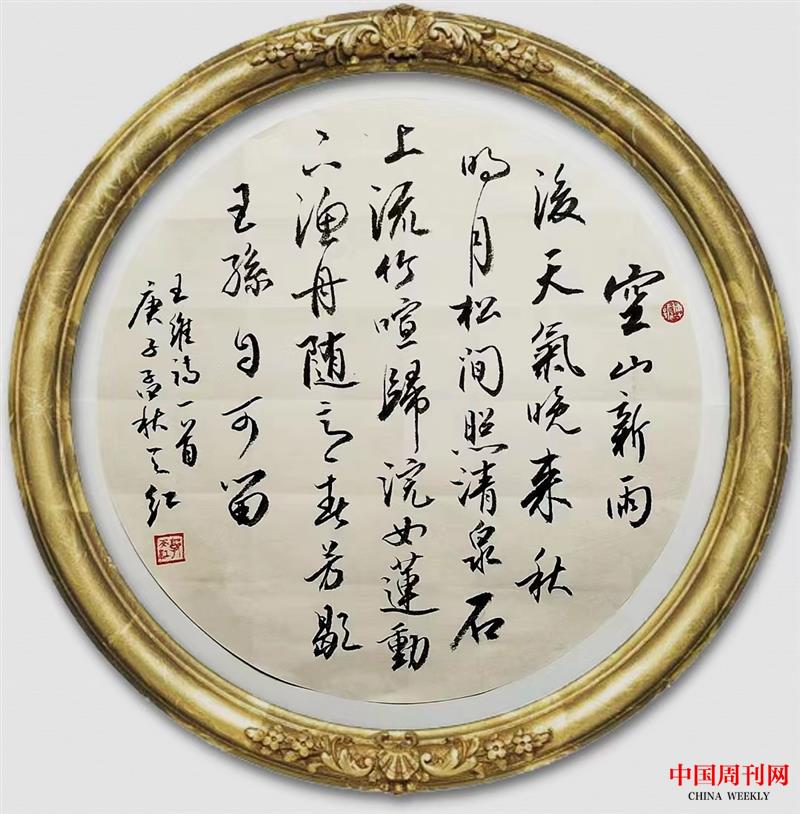 空山新雨
後天氣晚来秋
明月松间照清泉石
上流竹喧歸浣女蓮動
下渔舟随意春芳歇
王孫自可留
王维诗一首
庚子孟秋 红
中国周刊网
CHINA WEEKLY